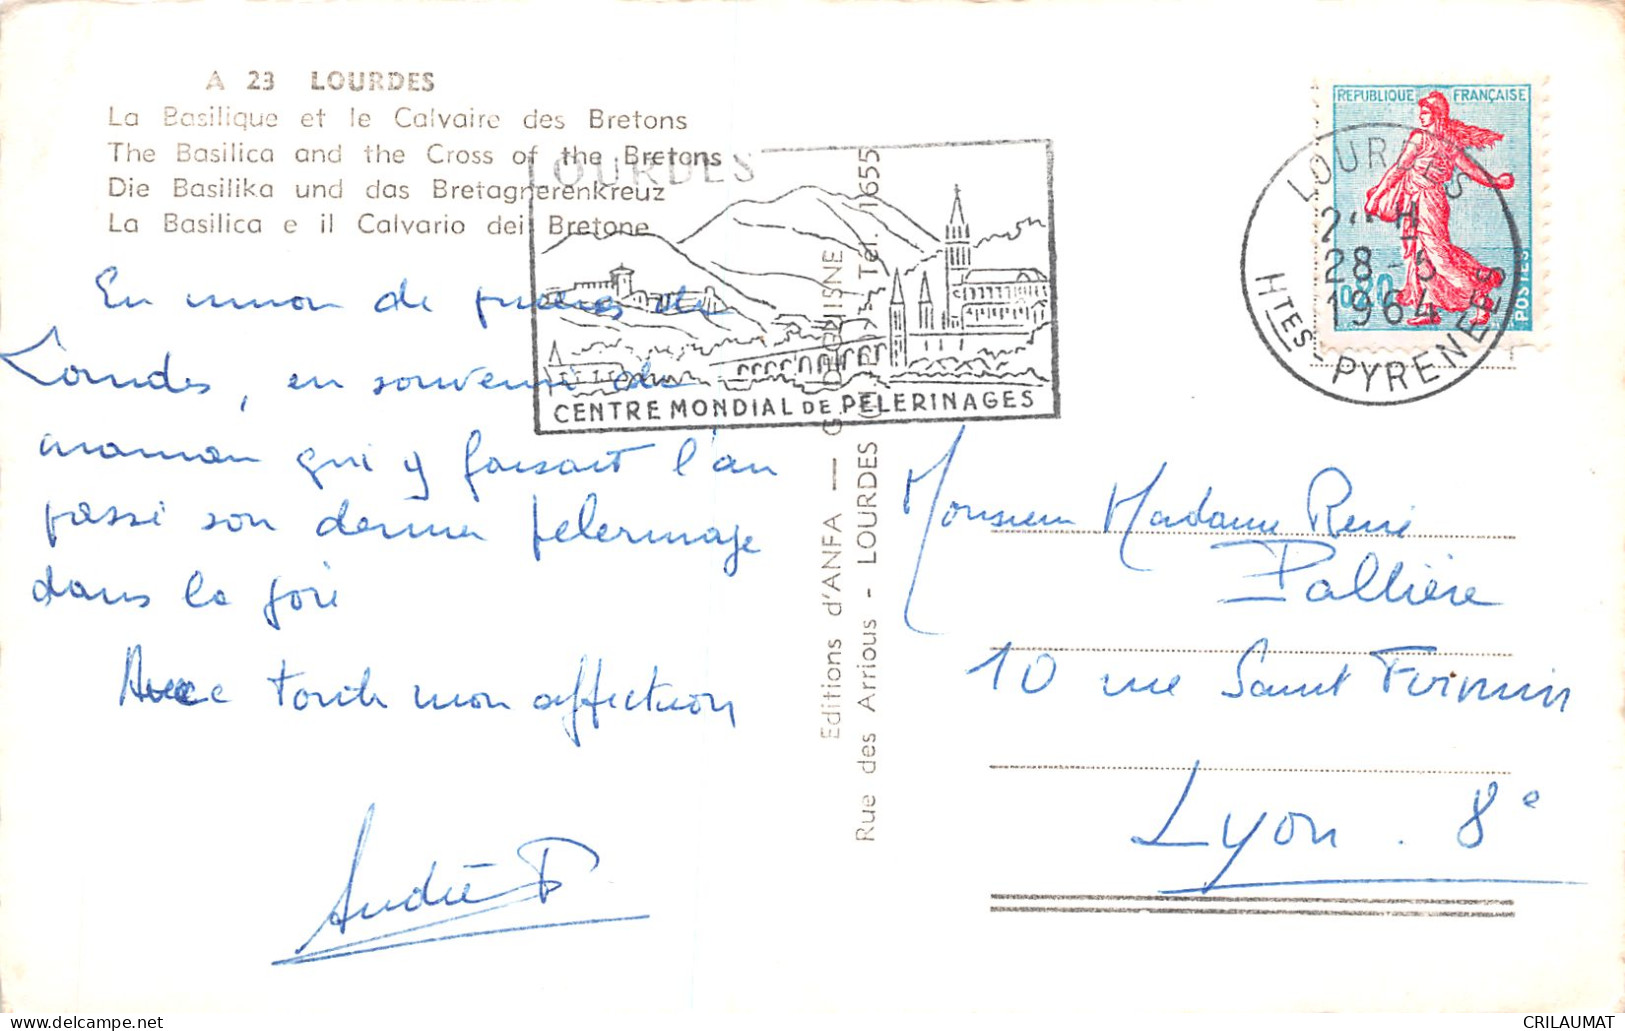 A 23 LOURDES
La Basilique et le Calvaire des Bretons
The Basilica and the Cross of the Bretons
Die Basilika und das Bretagnerenkreuz
La Basilica e il Calvario dei Bretone
En union de prières de
Lourdes, en souvenir de
maman qui y faisait l'an
passé son dernier pelerinage
dans la joie
Avec toute mon affection
Andrée P
OURDES
CENTRE MONDIAL DE PELERINAGES
Editions d'ANFA — G.
Rue des Arrious - LOURDES Tél. 1655
REPUBLIQUE FRANÇAISE
POSTES
LOURDES
28-5
1964
HTES-PYRENEES
Monsieur Madame René
Pallière
10 rue Saint Firmin
Lyon. 8e
CRILAUMAT